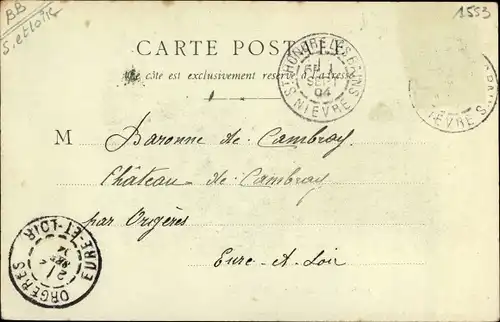 BB
S. et Loir
1553
CARTE POSTALE
Ce côté est exclusivement réservé à l'adresse
ST HONORÉ LES BAINS
SEPT
04
NIÈVRE
BAINS
NIÈVRE
M Baronne de Cambray
Château de Cambray
par Orgères
Eure-&-Loir
ORGERES
2
EURE-ET-LOIR